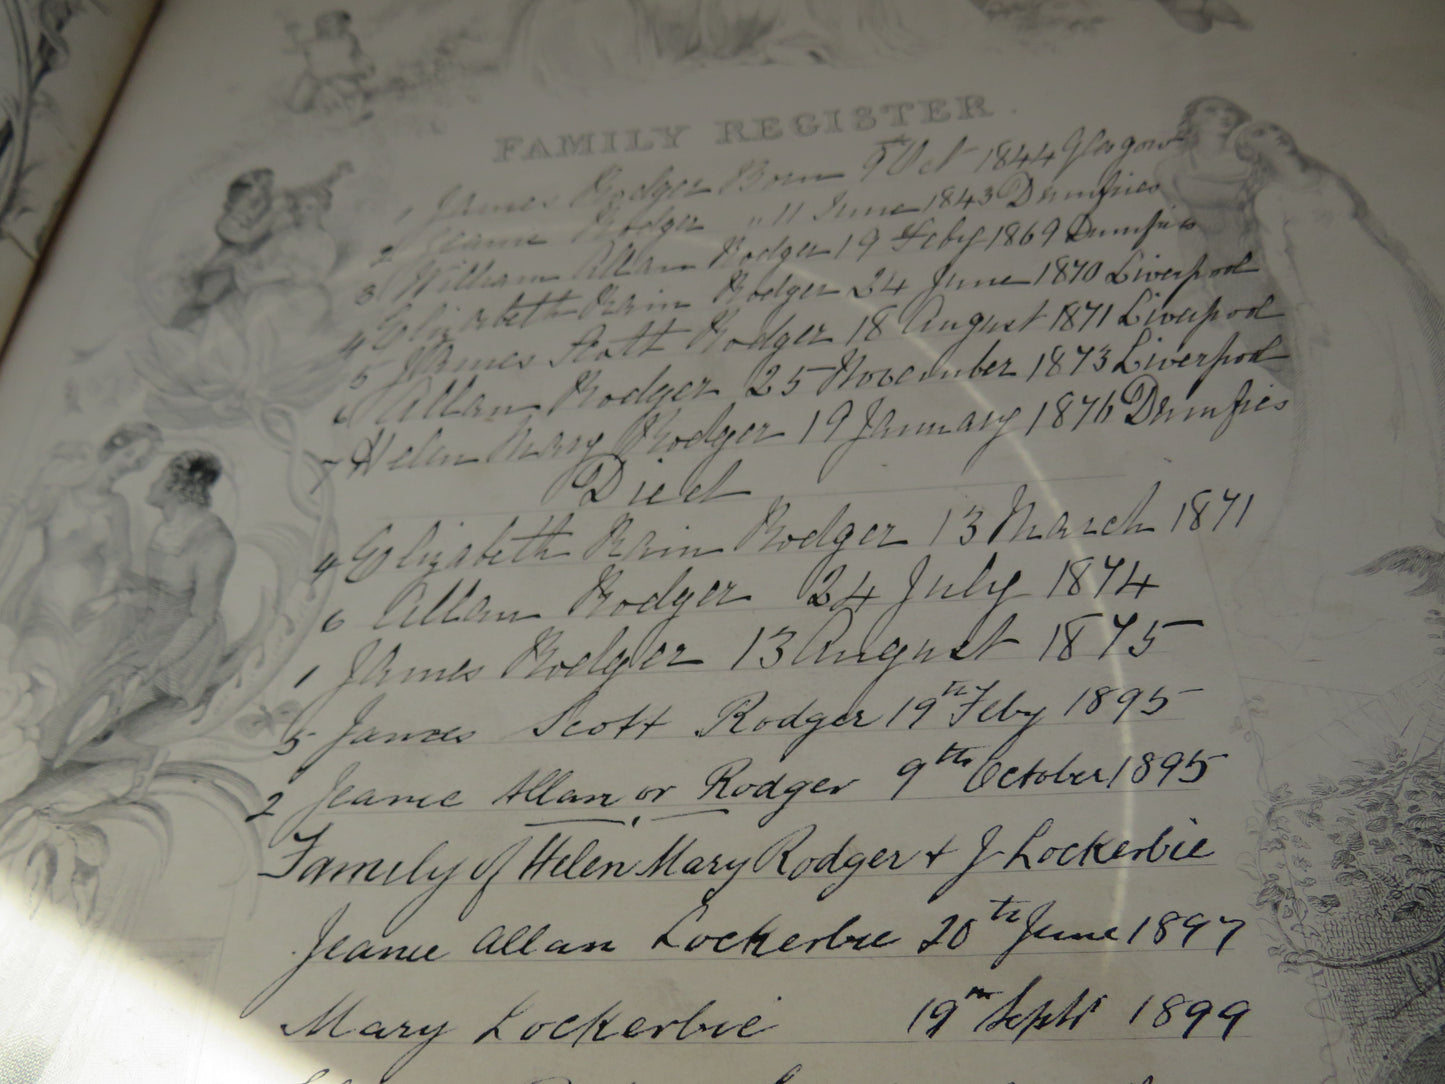 FAMILY REGISTER.
1 James Rodger Born 9th Oct 1844 Glasgow
2 Jeanie Rodger " 11 June 1843 Dumfries
3 William Allan Rodger 19 Feby 1869 Dumfries
4 Elizabeth Rain Rodger 24 June 1870 Liverpool
5 James Scott Rodger 18 August 1871 Liverpool
6 Allan Rodger 25 November 1873 Liverpool
7 Helen Mary Rodger 19 January 1876 Dumfries
Died
4 Elizabeth Rain Rodger 13 March 1871
6 Allan Rodger 24 July 1874
1 James Rodger 13 August 1875
5 James Scott Rodger 19th Feby 1895
2 Jeanie Allan or Rodger 9th October 1895
Family of Helen Mary Rodger & J Lockerbie
Jeanie Allan Lockerbie 20th June 1897
Mary Lockerbie 19th Sept 1899